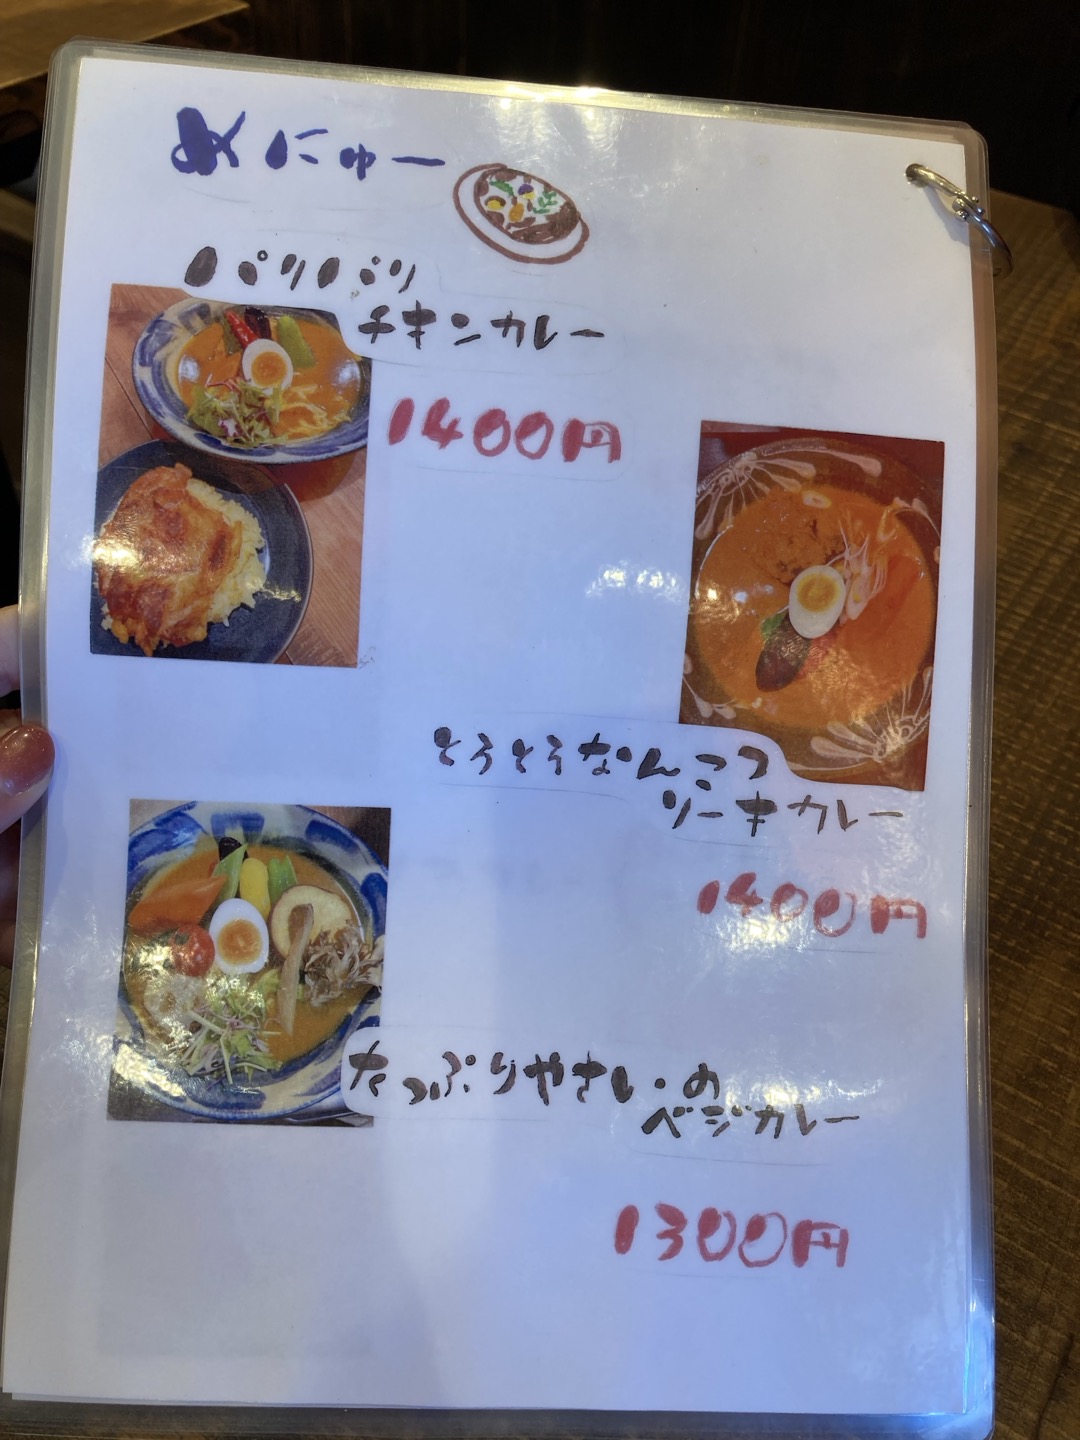 めにゅー
パリパリ
チキンカレー
1400円
とろとろなんこつ
ソーキカレー
1400円
たっぷりやさいの
ベジカレー
1300円